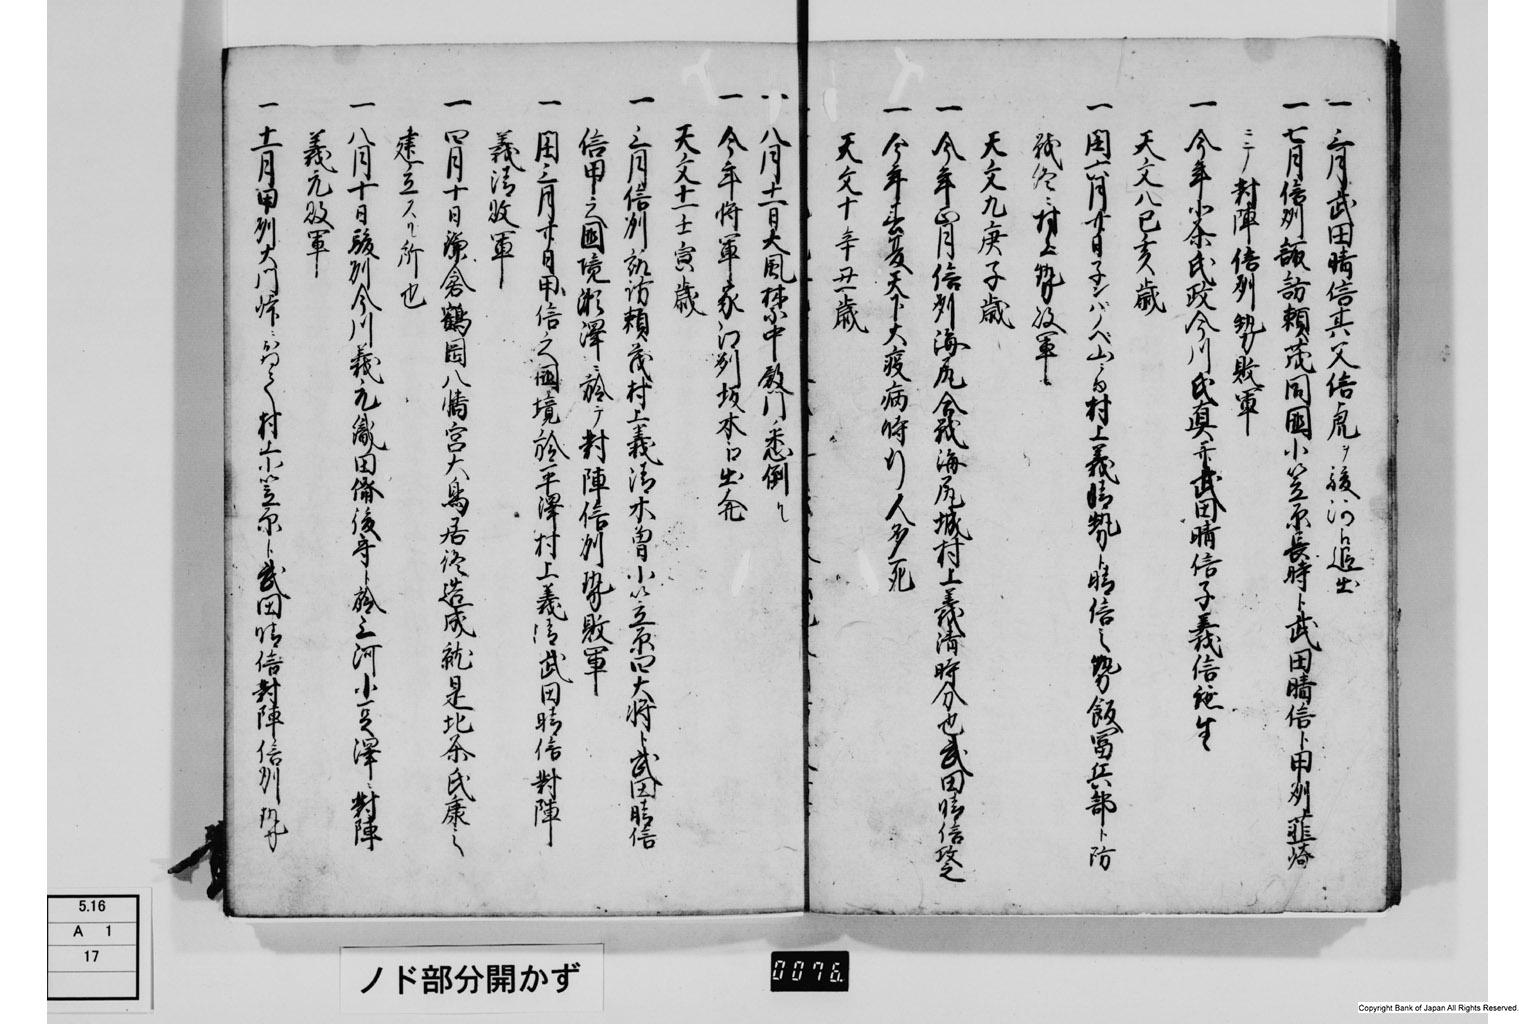 一 三月武田晴信其父信虎ヲ駿河ニ追出
一 七月信州諏訪頼茂同國小笠原長時ト武田晴信ト甲州韮崎
ニテ對陣信州勢敗軍
一 今年北条氏政今川氏真并武田晴信子義信誕生
天文八己亥歳
一 同六月廿日 村上義清勢ト晴信之勢飯冨兵部ト防
戦終ニ村上勢敗軍
天文九庚子歳
一 今年正月信州海尻合戦海尻城村上義清時分也武田晴信攻之
一 今年春夏天下大疫病時行人多死
天文十辛丑歳
一 八月十一日大風禁中殿門悉倒
一 今年将軍家江州坂本ニ出奔
天文十一壬寅歳
一 三月信州諏訪頼茂村上義清木曽小笠原四大将ト武田晴信
信甲之國境瀬澤ニ於テ對陣信州勢敗軍
一 同三月廿日甲信之國境於平澤村上義清武田晴信對陣
義清敗軍
一 四月十日鎌倉鶴岡八幡宮大鳥居終造成就是北条氏康之
建立スル所也
一 八月十日駿州今川義元織田備後守ト於三河小豆澤ニ對陣
義元敗軍
一 十一月甲州大門峠ニ 村上小笠原ト武田晴信對陣信州勢
5.16
A 1
17
ノド部分開かず
0076.
Copyright Bank of Japan All Rights Reserved.